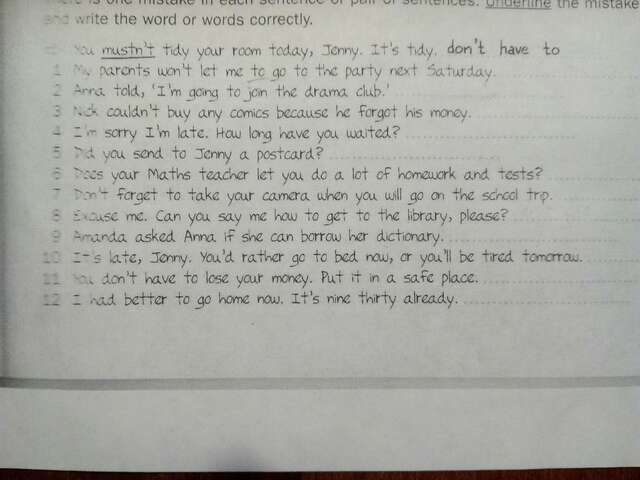 is one mistake in each sentence or pair of sentences. Underline the mistake
and write the word or words correctly.
You mustn't tidy your room today, Jenny. It's tidy. don't have to
1 My parents won't let me to go to the party next Saturday.
2 Anna told, 'I'm going to join the drama club.'
3 Nick couldn't buy any comics because he forgot his money.
4 I'm sorry I'm late. How long have you waited?
5 Did you send to Jenny a postcard?
6 Does your Maths teacher let you do a lot of homework and tests?
7 Don't forget to take your camera when you will go on the school trip.
8 Excuse me. Can you say me how to get to the library, please?
9 Amanda asked Anna if she can borrow her dictionary.
10 It's late, Jenny. You'd rather go to bed now, or you'll be tired tomorrow.
11 You don't have to lose your money. Put it in a safe place.
12 I had better to go home now. It's nine thirty already.